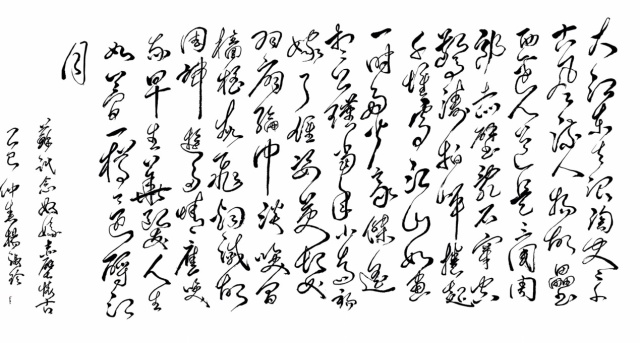 大江東去浪淘盡千
古風流人物故壘
西邊人道是三國周
郎赤壁亂石穿空
驚濤拍岸捲起
千堆雪江山如畫
一時多少豪傑遙
想公瑾當年小喬初
嫁了雄姿英發
羽扇綸巾談笑間
檣櫓灰飛煙滅故
國神遊多情應笑
我早生華髮人生
如夢一樽還酹江
月
蘇軾念奴嬌赤壁懷古
乙巳仲春楊